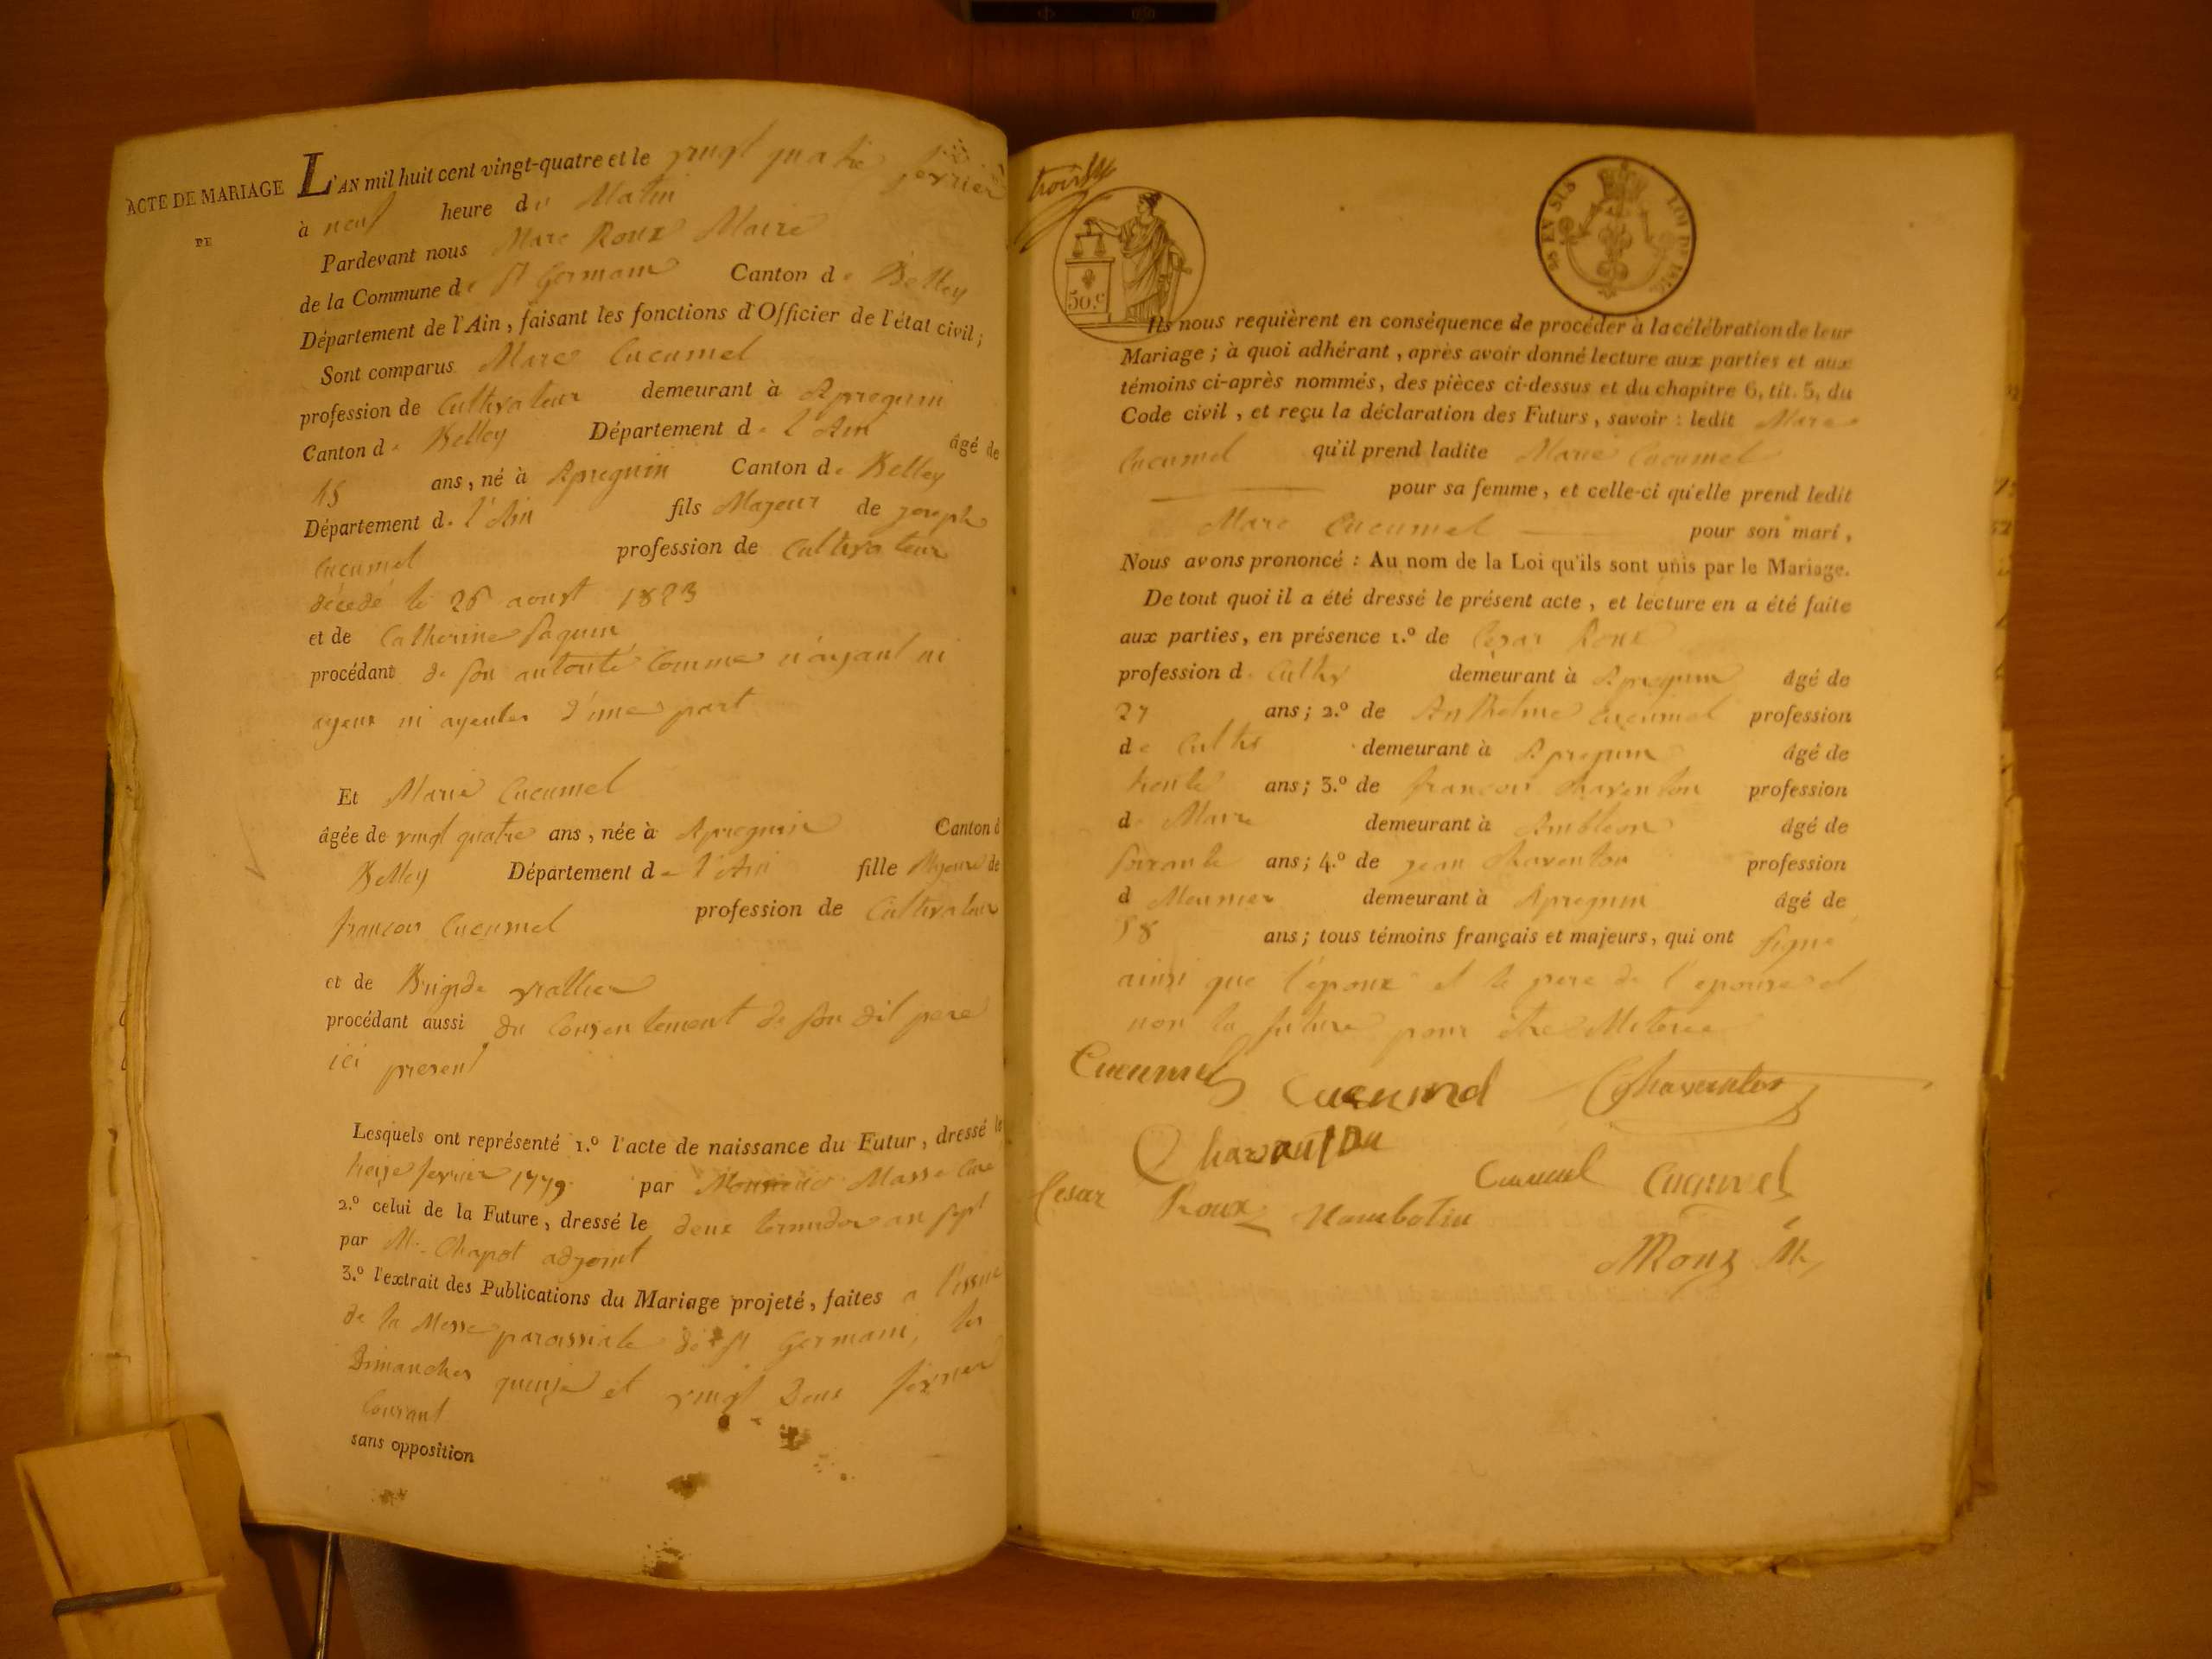 ACTE DE MARIAGE
DE
L'AN mil huit cent vingt-quatre et le vingt quatre fevrier
à neuf heure du Matin
Pardevant nous Marc Roux Maire
de la Commune de St Germain Canton de Belley
Département de l'Ain, faisant les fonctions d'Officier de l'état civil;
Sont comparus Marc Cucumel
profession de Cultivateur demeurant à Apregnin
Canton de Belley Département de l'Ain âgé de
45 ans, né à Apregnin Canton de Belley
Département de l'Ain fils Majeur de joseph
Cucumel profession de Cultivateur
décédé le 26 aoust 1823
et de Catherine
procédant de son autorité comme n'ayant ni
ayeux ni ayeules d'une part
Et Marie Cucumel
âgée de vingt quatre ans, née à Apregnin Canton d
Belley Département de l'Ain fille Majeure de
francois Cucumel profession de Cultivateur
et de Brigide
procédant aussi du Consentement de son dit pere
ici present
Lesquels ont représenté 1.º l'acte de naissance du Futur, dressé le
treize fevrier 1779 par Masse Curé
2.º celui de la Future, dressé le deux termidor an sept
par Mr. Chapot adjoint
3.º l'extrait des Publications du Mariage projeté, faites a l'issue
de la Messe paroissiale de St Germain, les
Dimanches quinze et vingt Deux fevrier
Courant
sans opposition
50.c
Ils nous requièrent en conséquence de procéder à la célébration de leur
Mariage; à quoi adhérant, après avoir donné lecture aux parties et aux
témoins ci-après nommés, des pièces ci-dessus et du chapitre 6, tit. 5, du
Code civil, et reçu la déclaration des Futurs, savoir: ledit Marc
Cucumel qu'il prend ladite Marie Cucumel
pour sa femme, et celle-ci qu'elle prend ledit
Marc Cucumel pour son mari,
Nous avons prononcé: Au nom de la Loi qu'ils sont unis par le Mariage.
De tout quoi il a été dressé le présent acte, et lecture en a été faite
aux parties, en présence 1.º de César Roux
profession d. Cultr demeurant à Apregnin âgé de
27 ans; 2.º de Anthelme Cucumel profession
de Cultr demeurant à Apregnin âgé de
trente ans; 3.º de francois Charenton profession
d. Maire demeurant à Ambleon âgé de
soixante ans; 4.º de jean Charenton profession
d Meunier demeurant à Apregnin âgé de
58 ans; tous témoins français et majeurs, qui ont signé
ainsi que l'époux et le pere de l'epouse et
non la future pour être illiteree
Cucumel Cucumel Charenton
Charanton
Cucumel Cucumel
Cesar Roux
MRoux M,